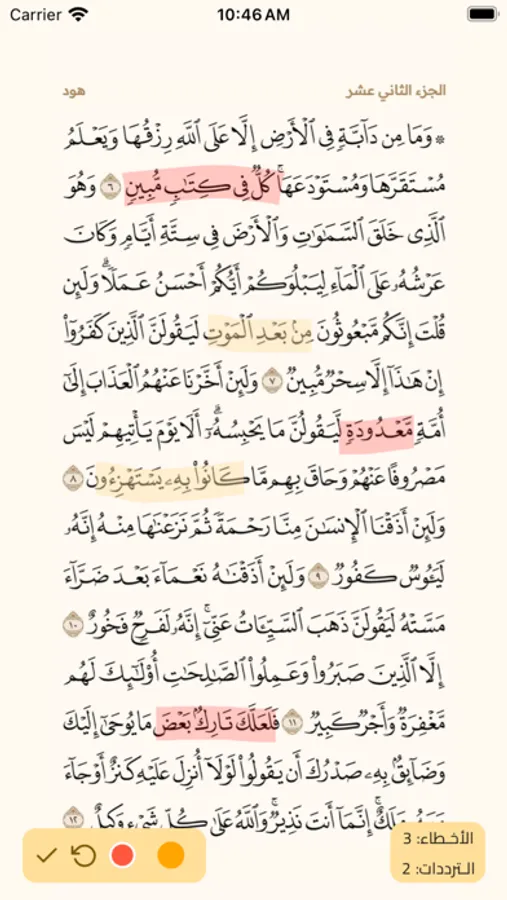 Carrier 10:46 AM
الجزء الثاني عشر هود
۞ وَمَا مِن دَآبَّةٖ فِي ٱلۡأَرۡضِ إِلَّا عَلَى ٱللَّهِ رِزۡقُهَا وَيَعۡلَمُ
مُسۡتَقَرَّهَا وَمُسۡتَوۡدَعَهَاۚ كُلّٞ فِي كِتَٰبٖ مُّبِينٖ ٦ وَهُوَ
ٱلَّذِي خَلَقَ ٱلسَّمَٰوَٰتِ وَٱلۡأَرۡضَ فِي سِتَّةِ أَيَّامٖ وَكَانَ
عَرۡشُهُۥ عَلَى ٱلۡمَآءِ لِيَبۡلُوَكُمۡ أَيُّكُمۡ أَحۡسَنُ عَمَلٗاۗ وَلَئِن
قُلۡتَ إِنَّكُم مَّبۡعُوثُونَ مِنۢ بَعۡدِ ٱلۡمَوۡتِ لَيَقُولَنَّ ٱلَّذِينَ كَفَرُوٓاْ
إِنۡ هَٰذَآ إِلَّا سِحۡرٞ مُّبِينٞ ٧ وَلَئِنۡ أَخَّرۡنَا عَنۡهُمُ ٱلۡعَذَابَ إِلَىٰٓ
أُمَّةٖ مَّعۡدُودَةٖ لَّيَقُولُنَّ مَا يَحۡبِسُهُۥٓۗ أَلَا يَوۡمَ يَأۡتِيهِمۡ لَيۡسَ
مَصۡرُوفًا عَنۡهُمۡ وَحَاقَ بِهِم مَّا كَانُواْ بِهِۦ يَسۡتَهۡزِءُونَ ٨
وَلَئِنۡ أَذَقۡنَا ٱلۡإِنسَٰنَ مِنَّا رَحۡمَةٗ ثُمَّ نَزَعۡنَٰهَا مِنۡهُ إِنَّهُۥ
لَيَـُٔوسٞ كَفُورٞ ٩ وَلَئِنۡ أَذَقۡنَٰهُ نَعۡمَآءَ بَعۡدَ ضَرَّآءَ
مَسَّتۡهُ لَيَقُولَنَّ ذَهَبَ ٱلسَّيِّـَٔاتُ عَنِّيٓۚ إِنَّهُۥ لَفَرِحٞ فَخُورٌ ١٠
إِلَّا ٱلَّذِينَ صَبَرُواْ وَعَمِلُواْ ٱلصَّٰلِحَٰتِ أُوْلَٰٓئِكَ لَهُم
مَّغۡفِرَةٞ وَأَجۡرٞ كَبِيرٞ ١١ فَلَعَلَّكَ تَارِكُۢ بَعۡضَ مَا يُوحَىٰٓ إِلَيۡكَ
وَضَآئِقُۢ بِهِۦ صَدۡرُكَ أَن يَقُولُواْ لَوۡلَآ أُنزِلَ عَلَيۡهِ كَنزٌ أَوۡ جَآءَ
مَلَكٌۚ إِنَّمَآ أَنتَ نَذِيرٞۚ وَٱللَّهُ عَلَىٰ كُلِّ شَيۡءٖ وَكِيلٌ ١٢
الأخطاء: 3
الترددات: 2